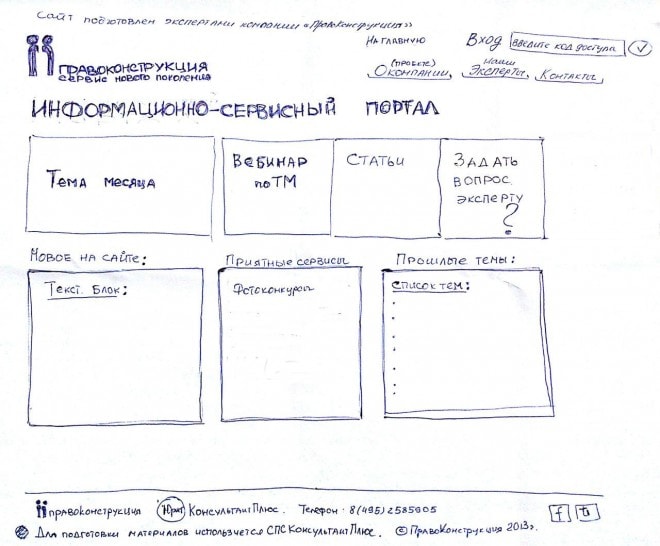 Сайт подготовлен экспертами компании «Правоконструкция»
На главную
Вход
введите код доступа
ПРАВОКОНСТРУКЦИЯ
сервис нового поколения
(проекте)
О компании, Наши Эксперты, Контакты
ИНФОРМАЦИОННО-СЕРВИСНЫЙ ПОРТАЛ
Тема месяца
Вебинар
по ТМ
Статьи
Задать
вопрос
эксперту
?
Новое на сайте:
Приятные сервисы
Прошлые темы:
Текст. Блок:
Фотоконкурсы
список тем:
правоконструкция
Юрит КонсультантПлюс. Телефон: 8(495)2585005
f t
Для подготовки материалов используется СПС КонсультантПлюс. © ПравоКонструкция 2013г.